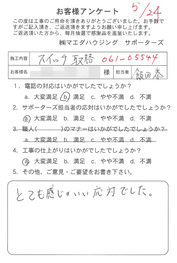 5/24
お客様アンケート
この度は工事のご用命を頂きありがとうございました。お手数で
すがご記入頂き、ご返送頂きますようお願い申し上げます。
ご返送頂いた方から、毎月抽選で感謝品を進呈しております。
㈱マエダハウジング サポーターズ
施工内容 スイッチ 取替 061-05544
お客様名 様 担当者
1. 電話の対応はいかがでしたでしょうか?
a. 大変満足 b. 満足 c. やや不満 d. 不満
2. サポーターズ担当者の応対はいかがでしたでしょうか?
a. 大変満足 b. 満足 c. やや不満 d. 不満
3. 職人( )のマナーはいかがでしたでしょうか?
a. 大変満足 b. 満足 c. やや不満 d. 不満
4. 工事の仕上がりはいかがでしたでしょうか?
a. 大変満足 b. 満足 c. やや不満 d. 不満
5. その他、ご意見・ご要望をお書き下さい。
とても感じのいい応対でした。